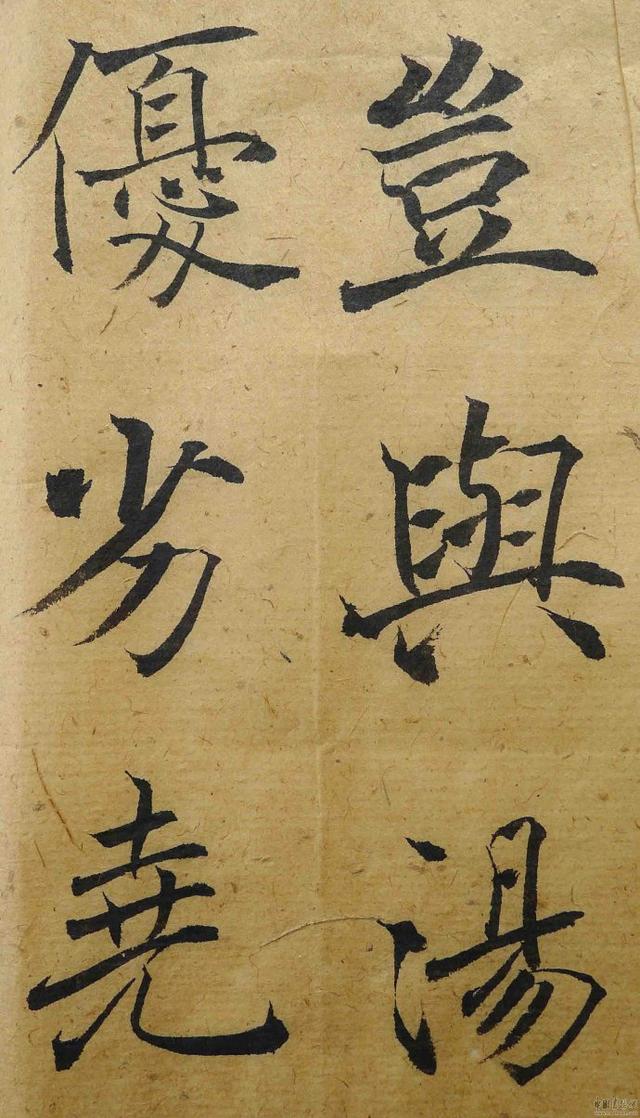 豈與湯
優劣堯